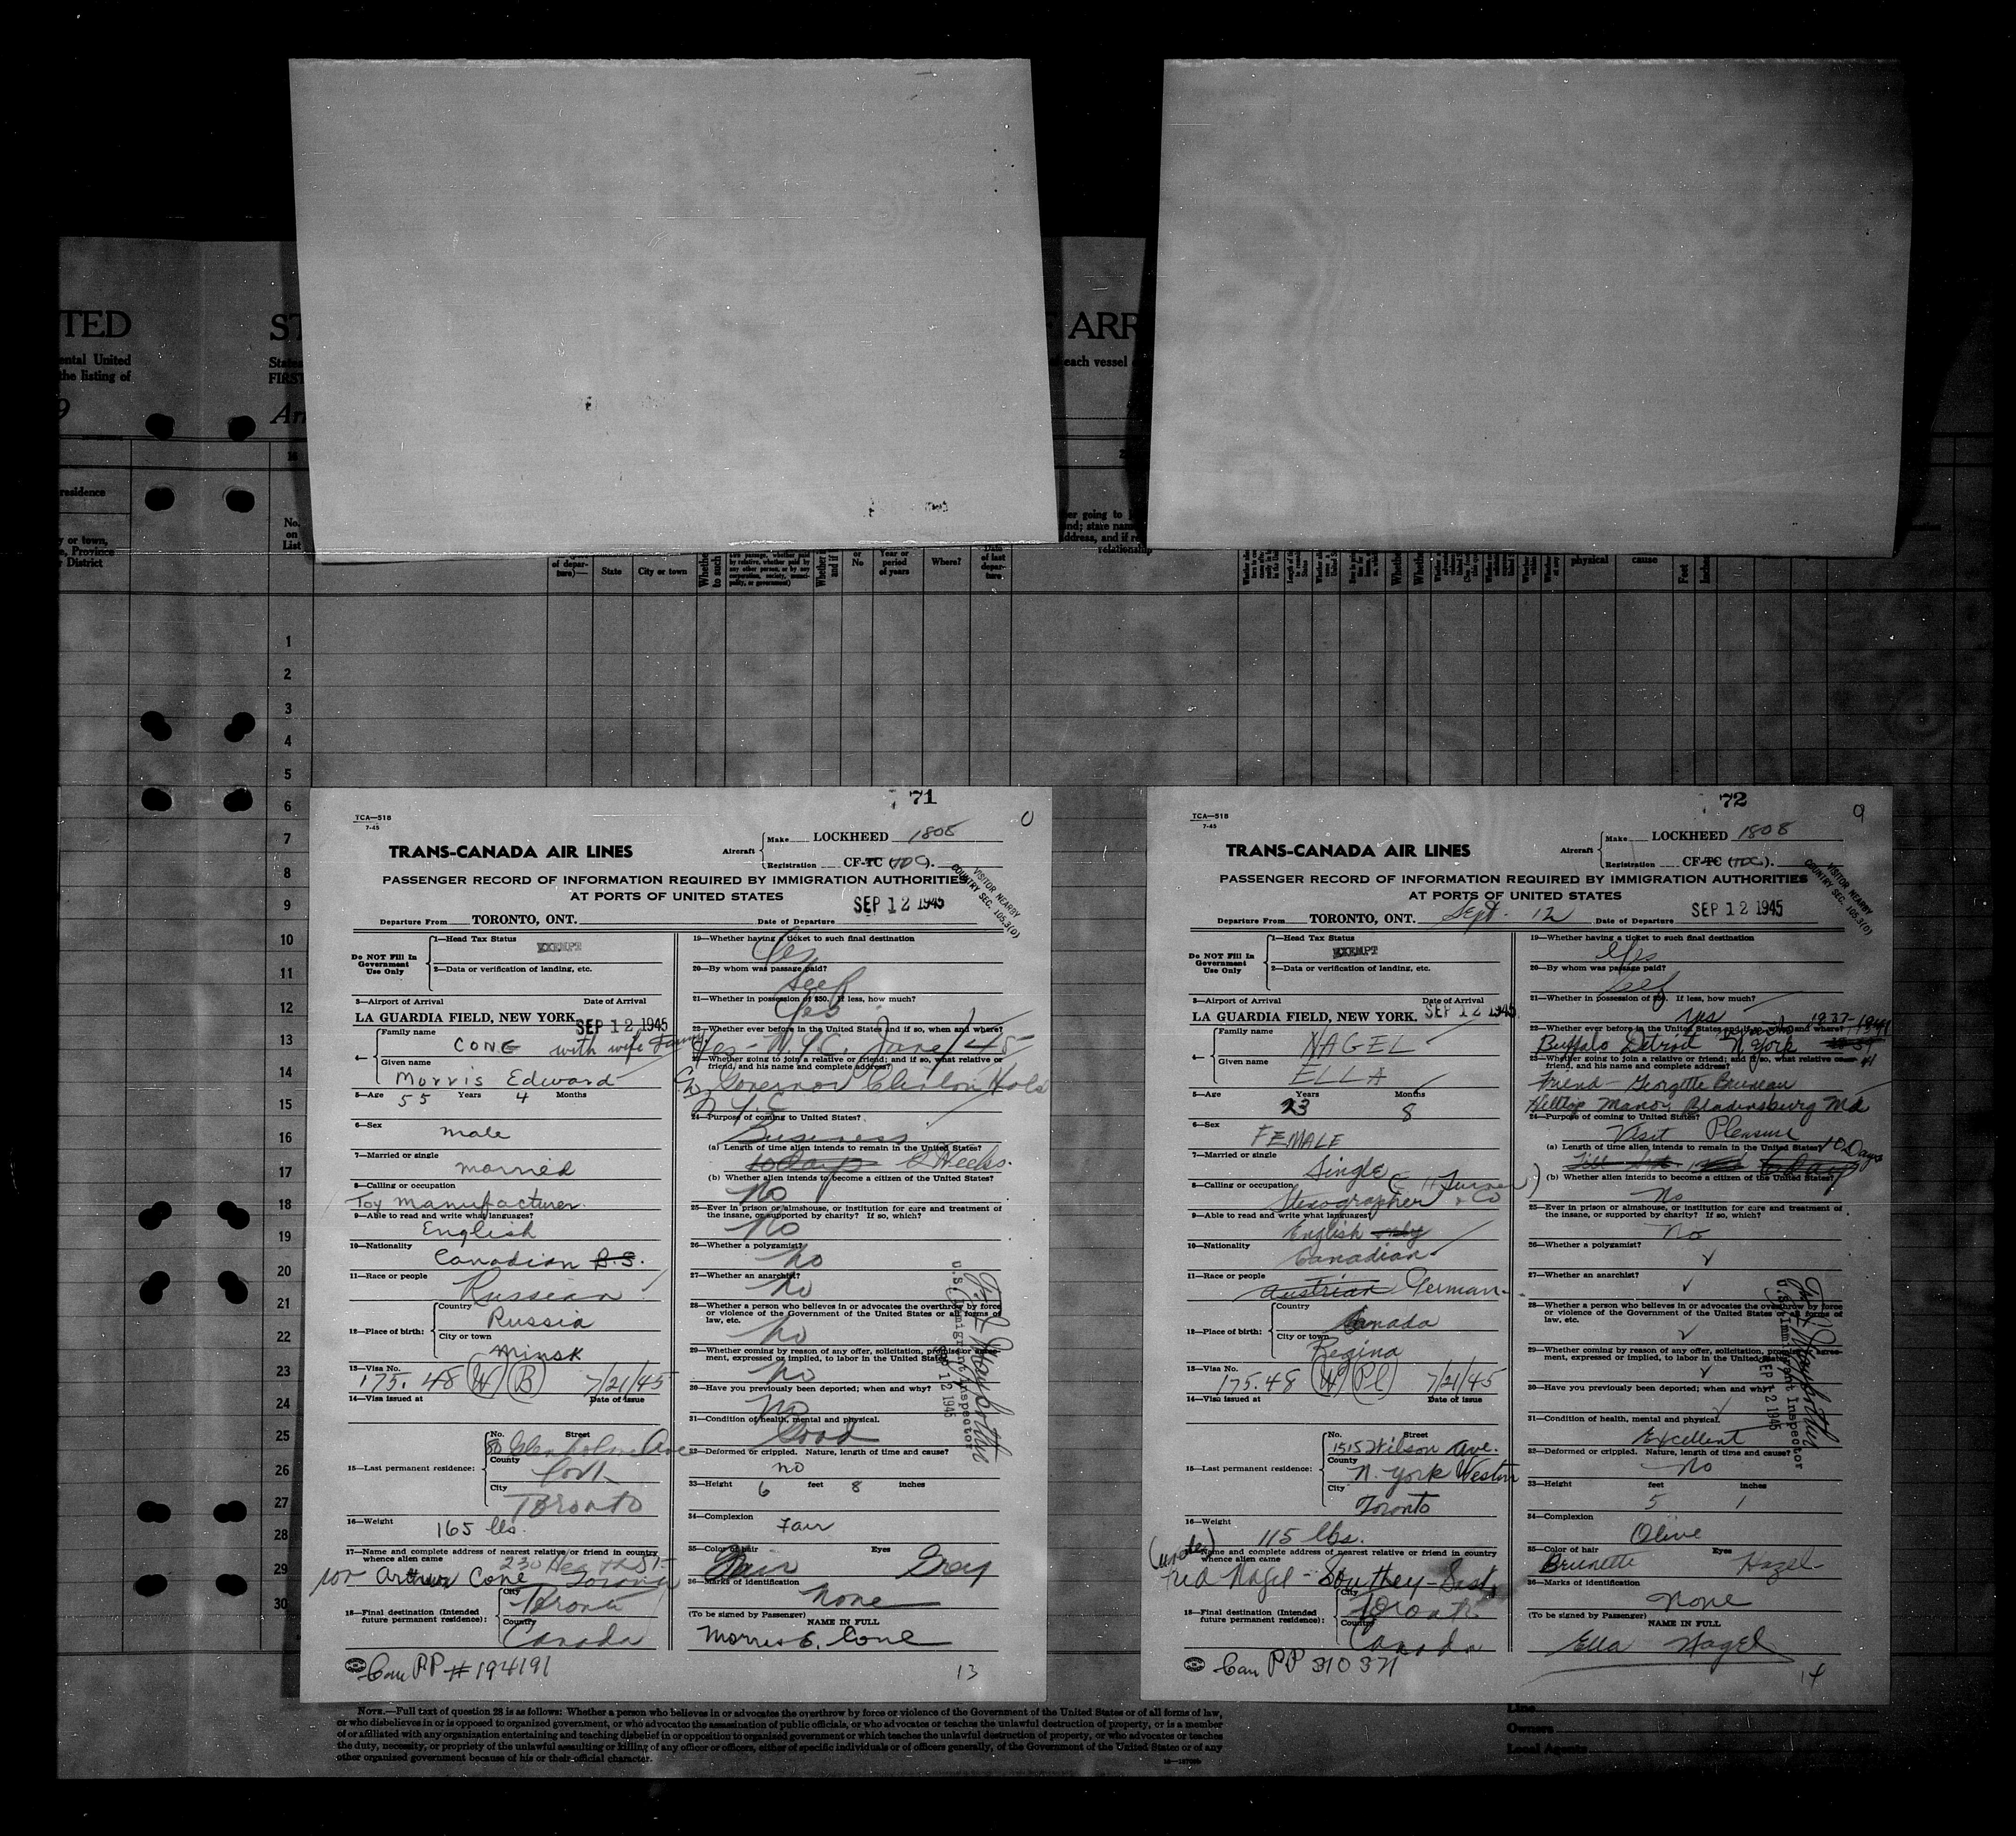 TED
ental United
the listing of
9
residence
y or town,
e, Province
r District
ST
States
FIRST
Arr
No.
on
List
ARR
each vessel
of depar-
ture)—
State
City or town
or
No
Year or
period
of years
Where?
Date
of last
depar-
ture
er going to
nd; state nam
ddress, and if re
relationship
physical
cause
Feet
Inches
1
2
3
4
5
6
7
8
9
10
11
12
13
14
15
16
17
18
19
20
21
22
23
24
25
26
27
28
29
30
71
TCA—518
7-45
TRANS-CANADA AIR LINES
Aircraft
Make LOCKHEED 1808
Registration CF-TC (TDC).
PASSENGER RECORD OF INFORMATION REQUIRED BY IMMIGRATION AUTHORITIES
AT PORTS OF UNITED STATES
VISITOR NEARBY
COUNTRY SEC. 105.3(0)
SEP 12 1945
Departure From TORONTO, ONT. Date of Departure
Do NOT Fill In
Government
Use Only
1—Head Tax Status
EXEMPT
2—Data or verification of landing, etc.
3—Airport of Arrival Date of Arrival
LA GUARDIA FIELD, NEW YORK. SEP 12 1945
4— Family name
CONE with wife
Given name
Morris Edward
5—Age 55 Years 4 Months
6—Sex
male
7—Married or single
married
8—Calling or occupation
Toy manufacturer.
9—Able to read and write what languages?
English
10—Nationality
Canadian B.S.
11—Race or people
Russian
12—Place of birth:
Country
Russia
City or town
Minsk
13—Visa No.
175.48 (W) (B) 7/21/45
14—Visa issued at Date of issue
15—Last permanent residence:
No. Street
80 Glenholme Ave
County
York
City
Toronto
16—Weight
165 lbs.
17—Name and complete address of nearest relative or friend in country
whence alien came
230 Heath St
son Arthur Cone Toronto
18—Final destination (Intended
future permanent residence):
City
Toronto
Country
Canada
Can PP # 194191
19—Whether having a ticket to such final destination
Yes
20—By whom was passage paid?
Self
21—Whether in possession of $50. If less, how much?
Yes
22—Whether ever before in the United States and if so, when and where?
Yes - N.Y.C. June/45
23—Whether going to join a relative or friend; and if so, what relative or
friend, and his name and complete address?
Governor Clinton Hotel
N.Y.C.
24—Purpose of coming to United States?
Business
(a) Length of time alien intends to remain in the United States?
10 days 2 Weeks.
(b) Whether alien intends to become a citizen of the United States?
No
25—Ever in prison or almshouse, or institution for care and treatment of
the insane, or supported by charity? If so, which?
No
26—Whether a polygamist?
No
27—Whether an anarchist?
No
28—Whether a person who believes in or advocates the overthrow by force
or violence of the Government of the United States or all forms of
law, etc.
No
29—Whether coming by reason of any offer, solicitation, promise or agree-
ment, expressed or implied, to labor in the United States
No
30—Have you previously been deported; when and why?
No
31—Condition of health, mental and physical.
Good
32—Deformed or crippled. Nature, length of time and cause?
no
33—Height 6 feet 8 inches
34—Complexion
Fair
35—Color of hair Eyes
Gray
36—Marks of identification
none
(To be signed by Passenger) NAME IN FULL
Morris E. Cone
13
U.S. Immigrant Inspector
SEP 12 1945
72
9
TCA—518
7-45
TRANS-CANADA AIR LINES
Aircraft
Make LOCKHEED 1808
Registration CF-TC (TDC).
PASSENGER RECORD OF INFORMATION REQUIRED BY IMMIGRATION AUTHORITIES
AT PORTS OF UNITED STATES
VISITOR NEARBY
COUNTRY SEC. 105.3(0)
SEP 12 1945
Departure From TORONTO, ONT. Sept. 12 Date of Departure
Do NOT Fill In
Government
Use Only
1—Head Tax Status
EXEMPT
2—Data or verification of landing, etc.
3—Airport of Arrival Date of Arrival
LA GUARDIA FIELD, NEW YORK. SEP 12 1945
4— Family name
NAGEL
Given name
ELLA
5—Age 23 Years 8 Months
6—Sex
FEMALE
7—Married or single
Single
8—Calling or occupation
Stenographer & Co
9—Able to read and write what languages?
English only
10—Nationality
Canadian
11—Race or people
Austrian German
12—Place of birth:
Country
Canada
City or town
Regina
13—Visa No.
175.48 (W) (Pl) 7/21/45
14—Visa issued at Date of issue
15—Last permanent residence:
No. Street
1515 Wilson Ave.
County
N. York Weston
City
Toronto
16—Weight
115 lbs.
(uncle)
Name and complete address of nearest relative or friend in country
whence alien came
Fred Nagel - Southey - Sask.
18—Final destination (Intended
future permanent residence):
City
Toronto
Country
Canada
Can PP 310371
19—Whether having a ticket to such final destination
Yes
20—By whom was passage paid?
Self
21—Whether in possession of $50. If less, how much?
yes
22—Whether ever before in the United States and if so, when and where?
1937-1941
Buffalo Detroit N. York
23—Whether going to join a relative or friend; and if so, what relative or
friend, and his name and complete address?
Friend - Georgette Bruneau
Hilltop Manor Bladensburg Md
24—Purpose of coming to United States?
Visit Pleasure
(a) Length of time alien intends to remain in the United States?
10 Days
(b) Whether alien intends to become a citizen of the United States?
No
25—Ever in prison or almshouse, or institution for care and treatment of
the insane, or supported by charity? If so, which?
No
26—Whether a polygamist?
27—Whether an anarchist?
28—Whether a person who believes in or advocates the overthrow by force
or violence of the Government of the United States or all forms of
law, etc.
29—Whether coming by reason of any offer, solicitation, promise or agree-
ment, expressed or implied, to labor in the United States
30—Have you previously been deported; when and why?
31—Condition of health, mental and physical.
Excellent
32—Deformed or crippled. Nature, length of time and cause?
No
33—Height 5 feet 1 inches
34—Complexion
Olive
35—Color of hair Eyes
Brunette Hazel
36—Marks of identification
None
(To be signed by Passenger) NAME IN FULL
Ella Nagel
14
U.S. Immigrant Inspector
SEP 12 1945
NOTE.—Full text of question 28 is as follows: Whether a person who believes in or advocates the overthrow by force or violence of the Government of the United States or of all forms of law,
or who disbelieves in or is opposed to organized government, or who advocates the assassination of public officials, or who advocates or teaches the unlawful destruction of property, or is a member
of or affiliated with any organization entertaining and teaching disbelief in or opposition to organized government or which teaches the unlawful destruction of property, or who advocates or teaches
the duty, necessity, or propriety of the unlawful assaulting or killing of any officer or officers, either of specific individuals or of officers generally, of the Government of the United States or of any
other organized government because of his or their official character.
Line
Owners
Local Agents